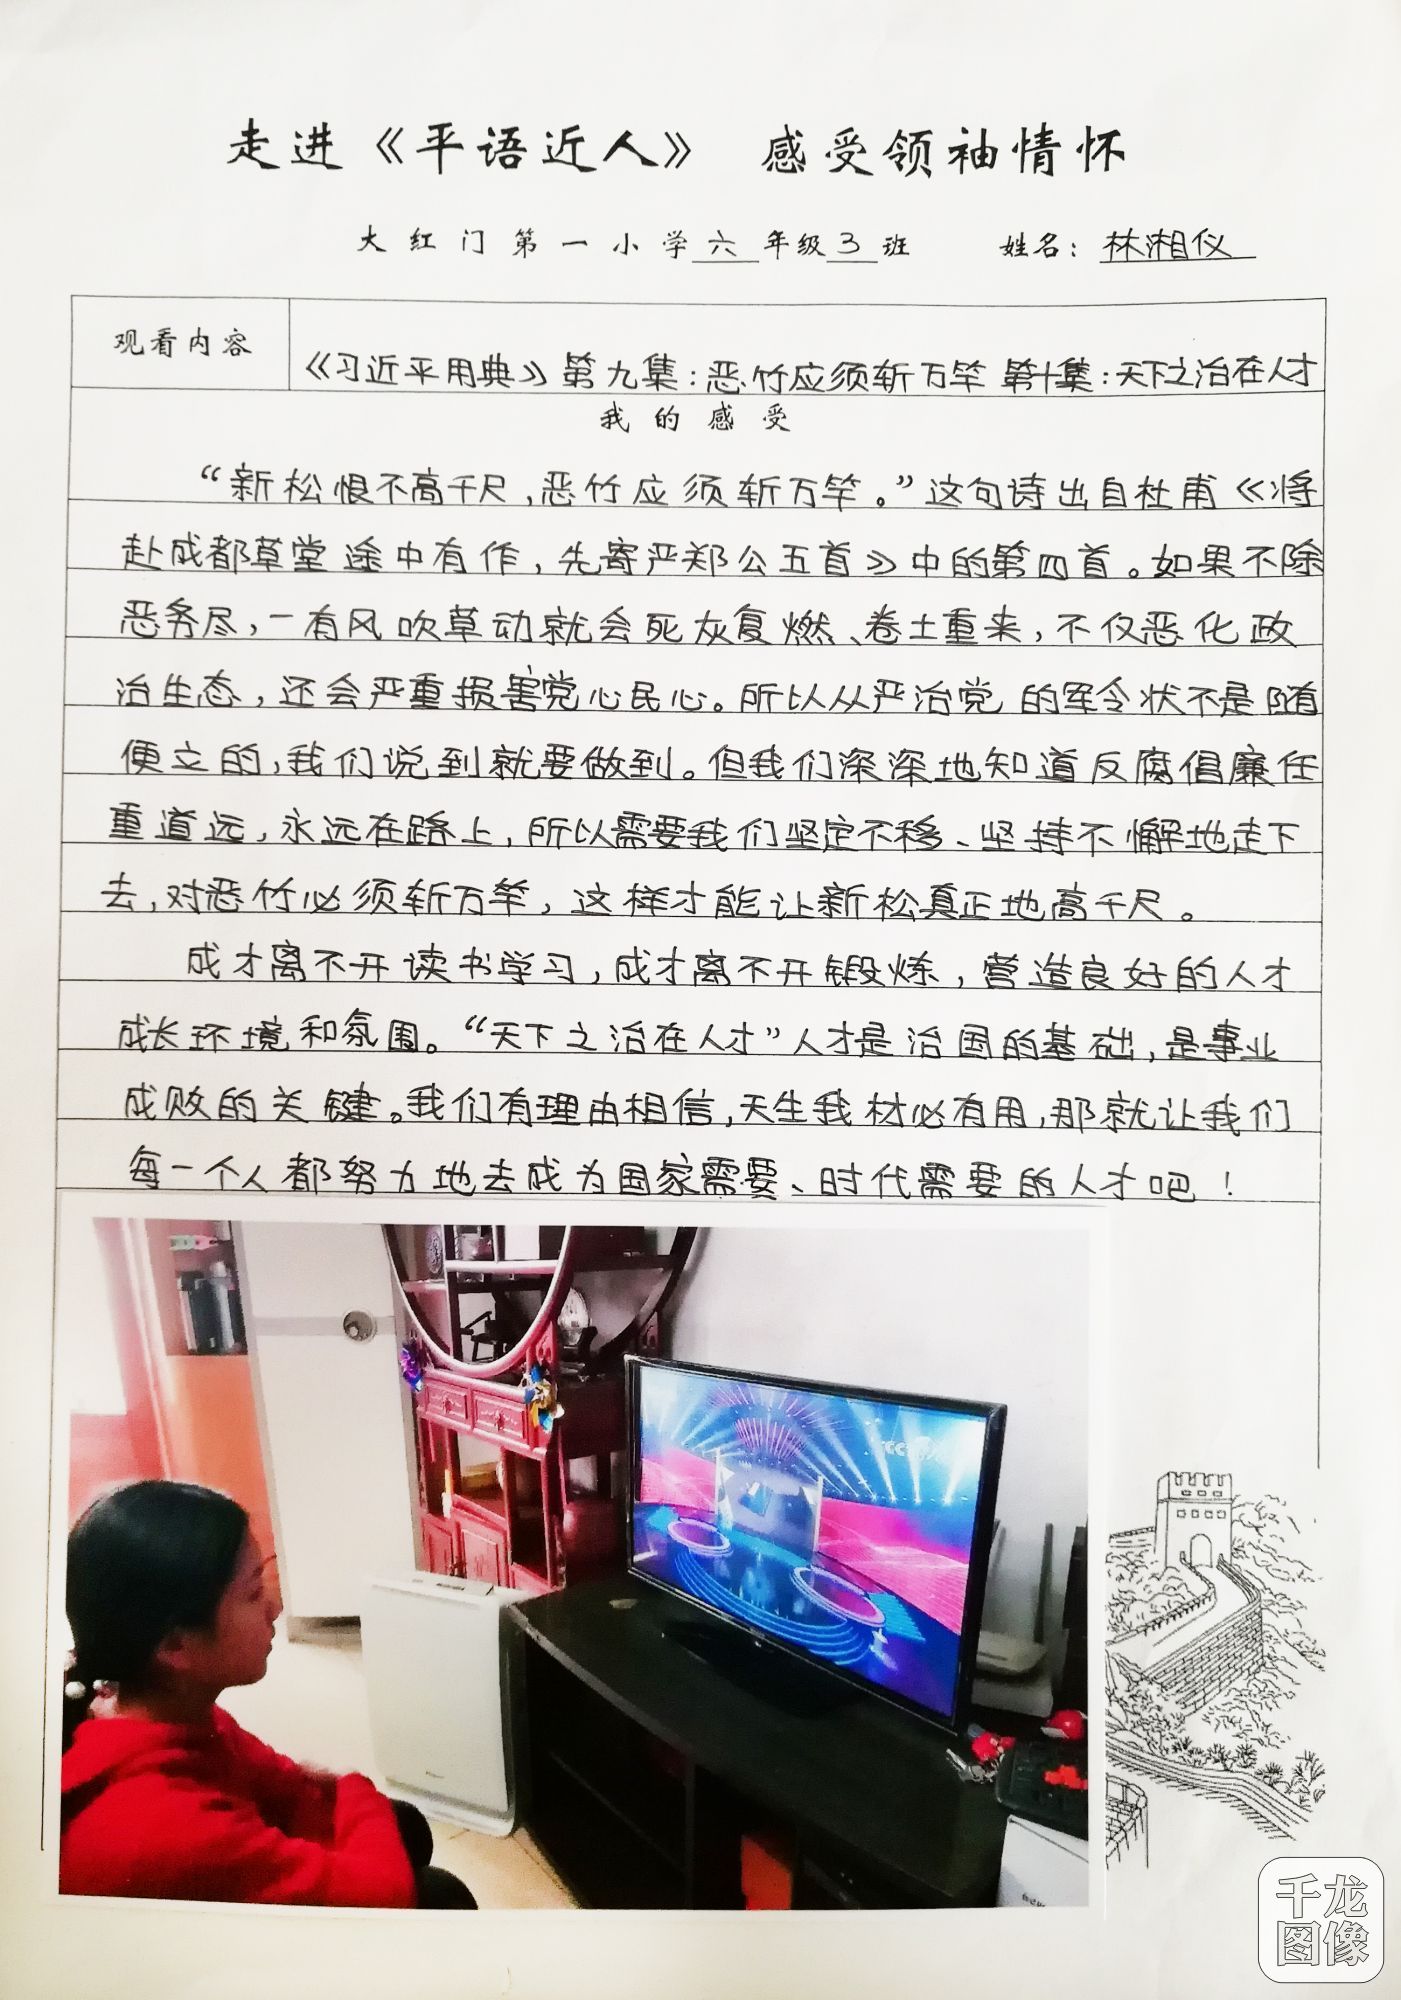 走进《平语近人》 感受领袖情怀
大红门第一小学六年级3班 姓名：林湘仪
观看内容
《习近平用典》第九集：恶竹应须斩万竿 第十集：天下之治在人才
我的感受
“新松恨不高千尺，恶竹应须斩万竿。”这句诗出自杜甫《将
赴成都草堂途中有作，先寄严郑公五首》中的第四首。如果不除
恶务尽，一有风吹草动就会死灰复燃、卷土重来，不仅恶化政
治生态，还会严重损害党心民心。所以从严治党的军令状不是随
便立的，我们说到就要做到。但我们深深地知道反腐倡廉任
重道远，永远在路上，所以需要我们坚定不移、坚持不懈地走下
去，对恶竹必须斩万竿，这样才能让新松真正地高千尺。
成才离不开读书学习，成才离不开锻炼，营造良好的人才
成长环境和氛围。“天下之治在人才”人才是治国的基础，是事业
成败的关键。我们有理由相信，天生我材必有用，那就让我们
每一个人都努力地去成为国家需要、时代需要的人才吧！
千龙
图像